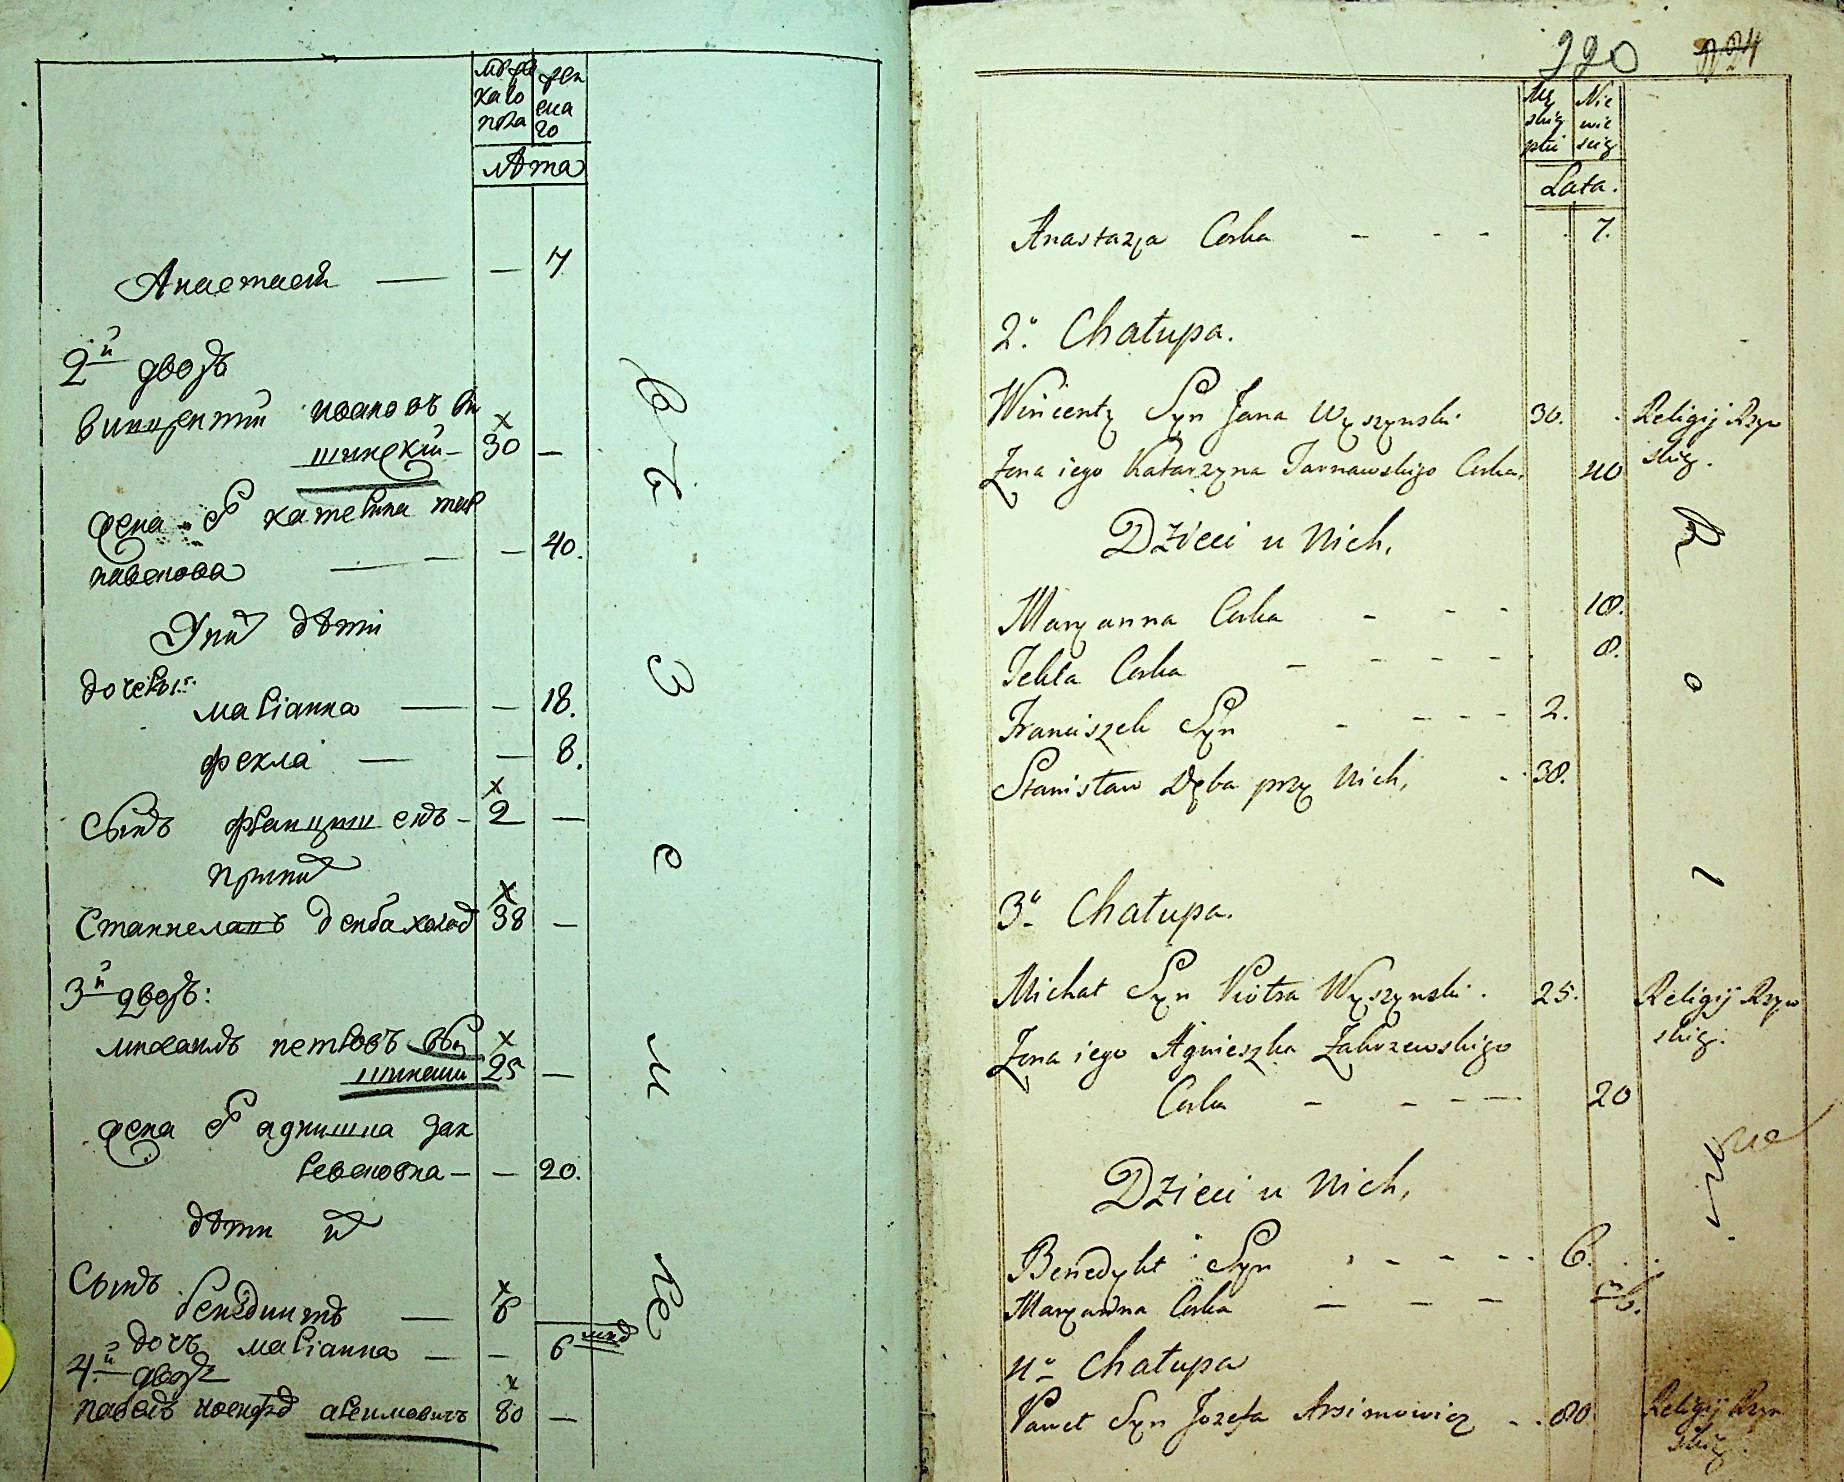 мужс
каго
пола
жен
скa
го
лѣта
Анастасія — — 7
2й дворъ
Винцентій Ивановъ Вы
шинскій — 30 —
жена ево Катерина тар
навскова — — 40.
У них дѣти
дочери:
Маріанна — — 18.
Фекла — — 8.
Сынъ Францишекъ — 2 —
при них
Станиславъ Демба холост 38 —
3й дворъ:
Михаилъ Петровъ Вы
шински 25 —
жена ево Агнишка Зак
ревсковна — — 20.
дѣти их
Сынъ Бенедиктъ — 6
дочь Маріанна — — 6 мцд
4й дворъ
Павелъ Иосифов Арсимовичъ 80 —
в ѣ з е м п е
220 N 24
Mę
skiej
płci
Nie
wie
sciey
Lata.
Anastazja Corka - - - 7.
2a Chałupa.
Wincenty Syn Jana Wyszynski 30. Religij Rzym
skiey.
Zona iego Katarzyna Tarnawskigo Corka. 40
Dzieci u Nich,
Maryanna Corka - - - 18.
Tekla Corka - - - - 8.
Franciszek Syn - - - - 2.
Stanisław Dęba przy Nich, - 38.
3a Chałupa.
Michał Syn Piotra Wyszynski. 25. Religij Rzym
skiey.
Zona iego Agnieszka Zakrzewskigo
Corka - - - - 20
Dzieci u Nich,
Benedykt Syn - - - - 6.
Maryanna Corka - - - m 6.
4a Chałupa
Paweł Syn Jozefa Arsimowicz - - 80 Religij Rzym
skiey.